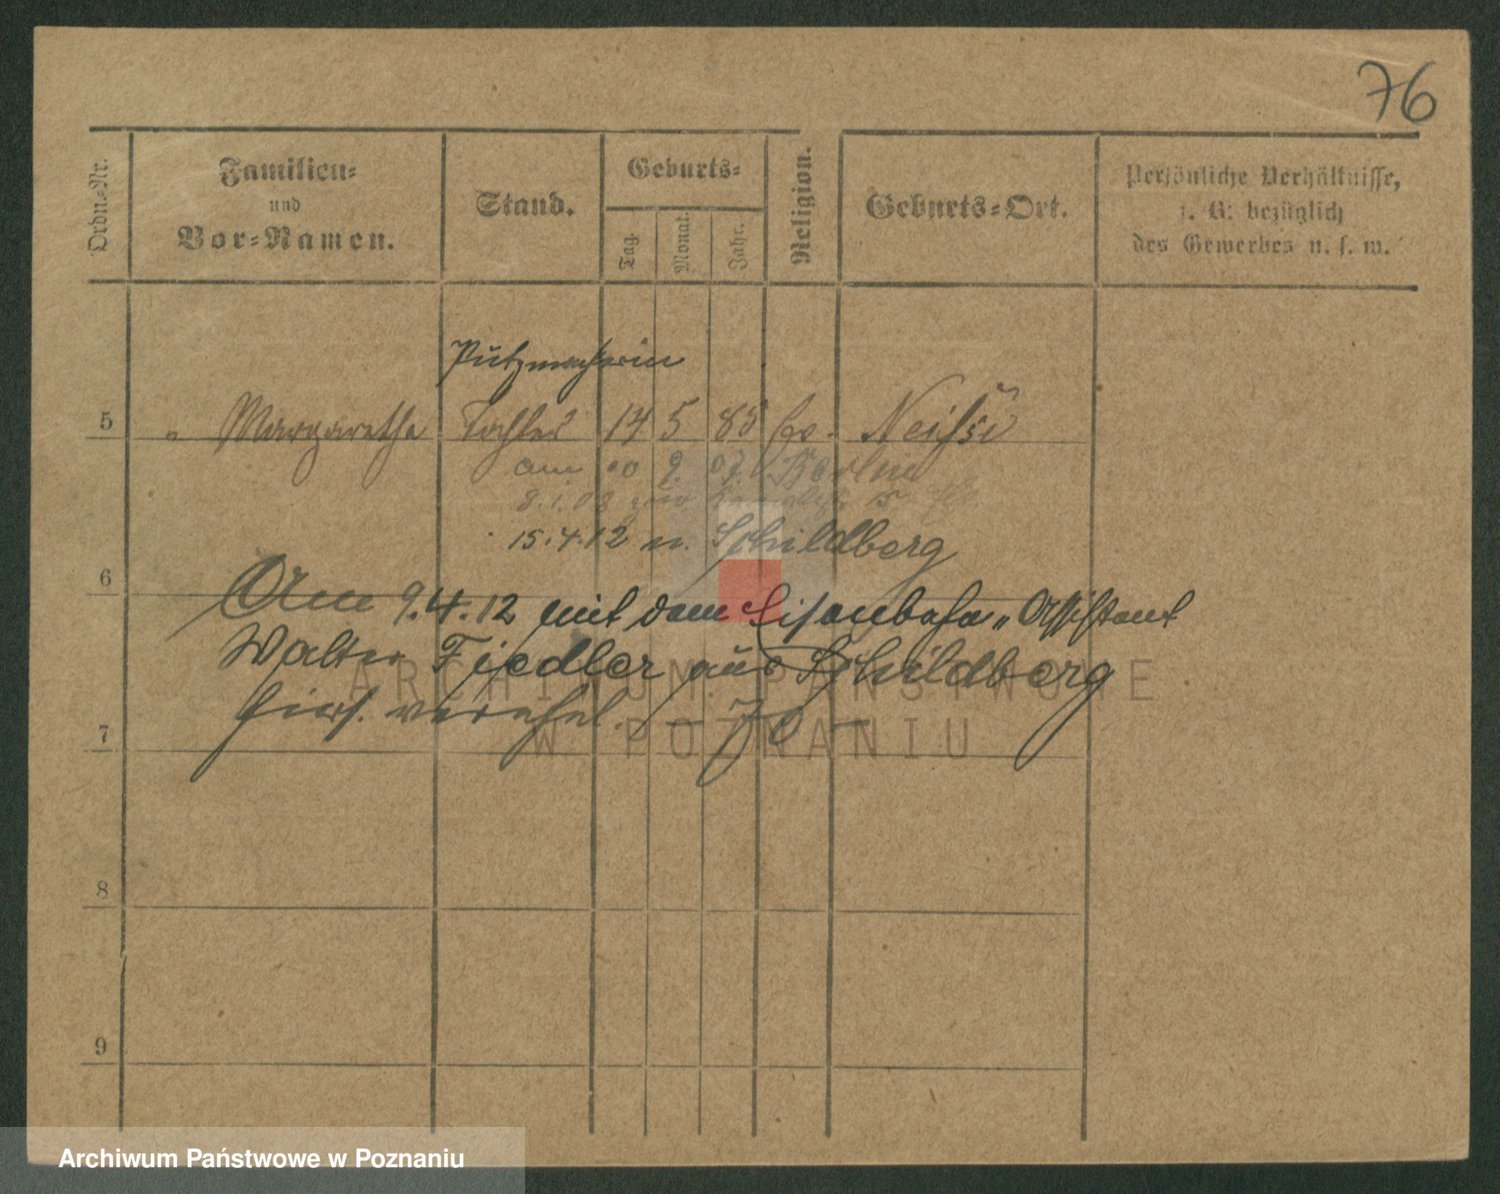 76
Ordn.-Nr.
Familien-
und
Vor-Namen.
Stand.
Geburts-
Tag.
Monat.
Jahr.
Religion.
Geburts-Ort.
Persönliche Verhältnisse,
z. B. bezüglich
des Gewerbes u. s. w.
Putzmacherin
5 " Margarethe Tochter 14 5 85 Ev. Neisse
am 9. 07. Berlin
8.1.08
15.4.12 n. Schildberg
6
Am 9.4.12 mit dem Eisenbahn-Assistent
Walter Fiedler aus Schildberg
hier verehel.
7
8
9
ARCHIWUM PAŃSTWOWE
W POZNANIU
Archiwum Państwowe w Poznaniu